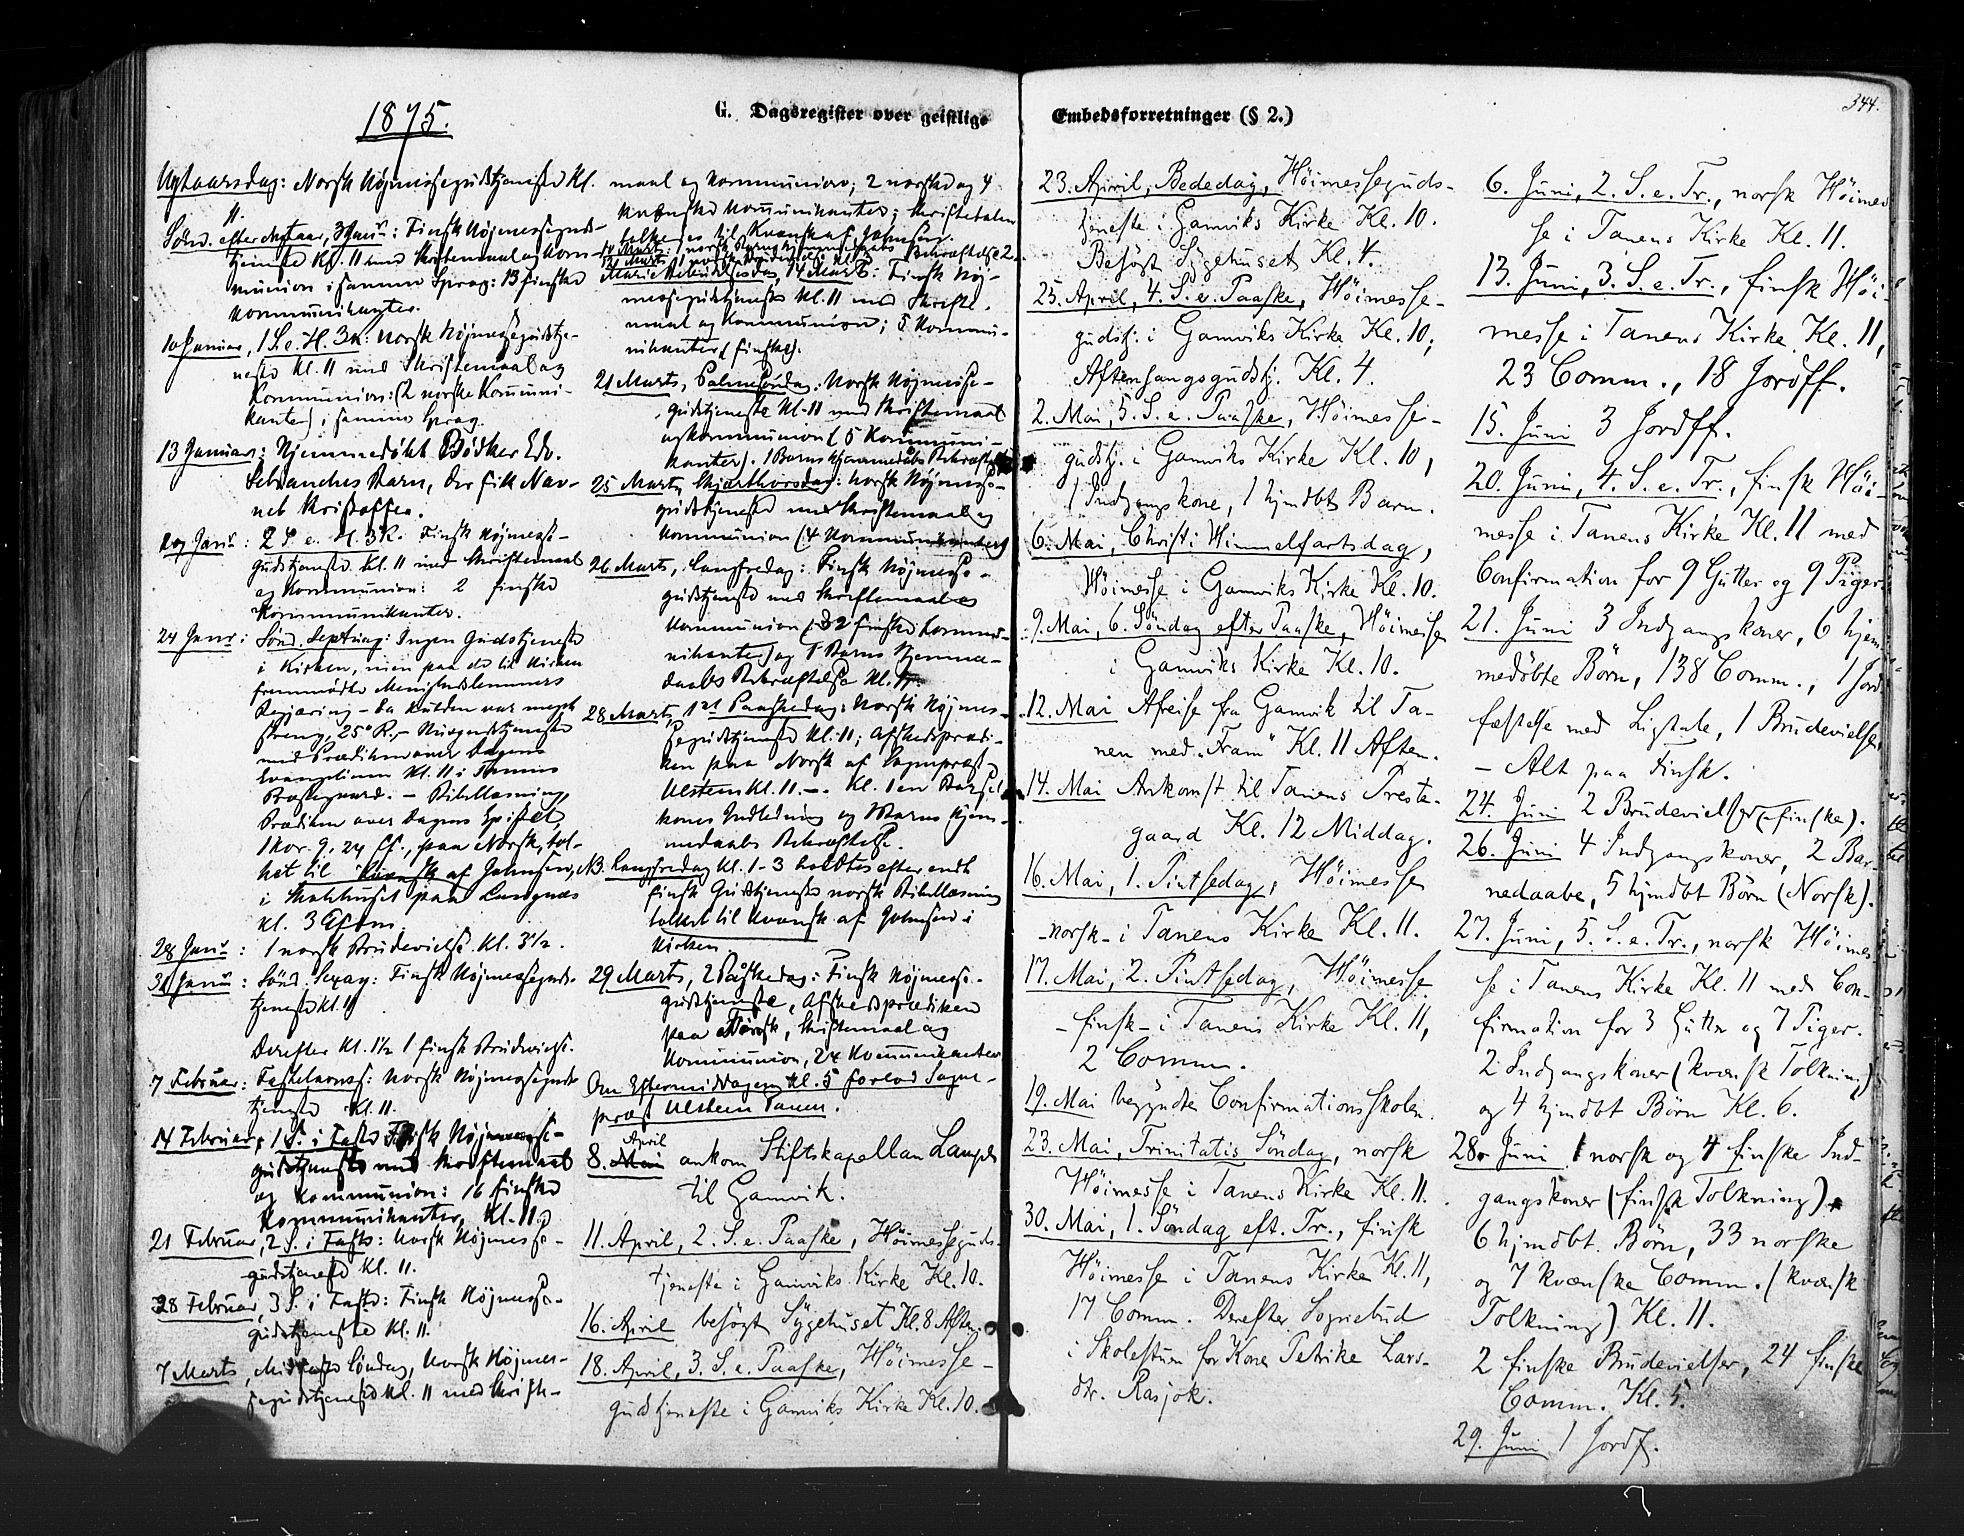 1875.
G. Dagsregister over geistlige
Nytaarsdag: Norsk Højmessegudstjeneste Kl.
11.
Sønd. efter Nytaar, 3 Janr: Finsk Højmesseguds-
tjeneste Kl. 11 med Skriftemaal og Kom-
munion i samme Sprog: 13 finske
Kommunikanter.
10 Januar, 1 S. e. H. 3 K: Norsk Højmessegudstje-
neste Kl. 11 med Skriftemaal og
Kommunion: (2 norske Kommuni-
kanter) i samme Sprog.
13 Januar: Hjemmedøbt Bødker Edv.
Barn, der fik Nav-
net Kristoffer.
Janr: 2 S. e. H. 3 K. Finsk Højmesse-
gudstjeneste Kl. 11 med Skriftemaal
og Kommunion: 2 finske
Kommunikanter.
24 Janr: Sønd. Septuag: Ingen Gudstjeneste
i Kirken, men paa de til Kirken
fremmødte Menighedslemmers
Begjæring – da Kulden var meget
streng, 25° R, –
med Prædiken over Dagens
Evangelium Kl. 11 i Tanens
Præstegaard. – Bibellæsning,
Prædiken over Dagens Epistel
1 Kor. 9, 24 ff., paa Norsk, tol-
ket til Kvænsk af Johnsen,
i Skolehuset paa Langnæs
Kl. 3 Efterm.
28 Janr: 1 norsk Brudevielse Kl. 3½.
31 Janr: Sønd. Sexag: Finsk Højmesseguds-
tjeneste Kl. 11
Derefter Kl. 1½ 1 finsk Brudeviels.
7 Februar: Fastelavnss: Norsk Højmesseguds-
tjeneste Kl. 11.
14 Februar, 1 S. i Faste Finsk Højmesse-
gudstjeneste med Skriftemaal
og Kommunion: 16 finske
Kommunikanter, Kl. 11.
21 Februar, 2 S. i Faste: Norsk Højmesse-
gudstjeneste Kl. 11.
28 Februar, 3 S. i Faste: Finsk Højmesse-
gudstjeneste Kl. 11.
7 Marts, Midfaste Søndag, Norsk Højmes-
segudstjeneste Kl. 11 med Skrifte-
maal og Kommunion; 2 norske og 4
kvænske Kommunikanter; Skriftetalen
tolkedes til Kvænsk af Johnsen.
Marie Bebudelsesdag, 14 Marts: Finsk Høj-
messegudstjeneste Kl. 11 med Skrifte-
maal og Kommunion; 5 Kommu-
nikanter (finske).
21 Marts, Palmesøndag: Norsk Højmesse-
gudstjeneste Kl. 11 med Skriftemaal
og Kommunion (5 Kommuni-
kanter). 1 Barns Hjemmedaabs Bekræftelse
25 Marts, Skjærthorsdag: Norsk Højmesse-
gudstjeneste med Skriftemaal og
Kommunion (4 Kommunikanter)
26 Marts, Langfredag: Finsk Højmesse-
gudstjeneste med Skriftemaal og
Kommunion (32 finske Kommu-
nikanter) og 1 Barns Hjemme-
daabs Bekræftelse Kl. 11.
28 Marts, 1ste Paaskedag: Norsk Højmes-
segudstjeneste Kl. 11; Afskedspræedi-
ken paa Norsk af Sognepræst
Ulstein Kl. 11. – Kl. 1 en Barsel-
kones Indledning og 1 Barns Hjem-
medaabs Bekræftelse.
NB. Langfredag Kl. 1-3 holdtes efter endt
finsk Gudstjeneste norsk Bibellæsning
tolket til Kvænsk af Johnsen i
Kirken.
29 Marts, 2 Paaskedag: Finsk Højmesse-
gudstjeneste, Afskedsprædiken
paa Finsk, Skriftemaal og
Kommunion, 24 Kommunikanter
Om Eftermiddagen Kl. 5 forlod Sogne-
præst Ulstein Tanen.
April
8. Mai ankom Stiftskapellan
til Gamvik.
11. April, 2. S. e. Paaske, Höimesseguds-
tjeneste i Gamviks Kirke Kl. 10.
16. April besögt Sygehuset Kl. 8 Aften.
18. April, 3. S. e. Paaske, Höimesse-
gudstjeneste i Gamviks Kirke Kl. 10.
Embedsforretninger (§ 2.)
344.
23. April, Bededag, Höimesseguds-
tjeneste i Gamviks Kirke Kl. 10.
Besögt Sygehuset Kl. 4.
25. April, 4. S. e. Paaske, Höimesse-
gudstj. i Gamviks Kirke Kl. 10;
Aftensangsgudstj. Kl. 4.
2. Mai, 5. S. e. Paaske, Höimesse-
gudstj. i Gamviks Kirke Kl. 10,
1 Indgangskone, 1 hjmdbt Barn.
6. Mai, Christi Himmelfartsdag,
Höimesse i Gamviks Kirke Kl. 10.
9. Mai, 6. Söndag efter Paaske, Höimesse
i Gamviks Kirke Kl. 10.
12. Mai Afreise fra Gamvik til Ta-
nen med „Fram" Kl. 11 Aften.
14. Mai Ankomst til Tanens Preste-
gaard Kl. 12 Middag.
16. Mai, 1. Pintsedag, Höimesse
-norsk- i Tanens Kirke Kl. 11.
17. Mai, 2. Pintsedag, Höimesse
-finsk- i Tanens Kirke Kl. 11,
2 Comm.
19. Mai begyndte Confirmationsskolen.
23. Mai, Trinitatis Söndag, norsk
Höimesse i Tanens Kirke Kl. 11.
30. Mai, 1. Söndag eft. Tr., finsk
Höimesse i Tanens Kirke Kl. 11,
17 Comm. Derefter Sognebud
i Skolestuen for Kone Petrike Lars-
dtr. Rasjok.
6. Juni, 2. S. e. Tr., norsk Höimes
se i Tanens Kirke Kl. 11.
13. Juni, 3. S. e. Tr., finsk Höi-
messe i Tanens Kirke Kl. 11,
23 Comm., 18 Jordff.
15. Juni 3 Jordff.
20. Juni, 4. S. e. Tr., finsk Höi-
messe i Tanens Kirke Kl. 11 med
Confirmation for 9 Gutter og 9 Piger.
21. Juni 3 Indgangskoner, 6 hjem-
medöbte Börn, 138 Comm., 1 Jord
fæstelse med Ligtale, 1 Brudevielse,
– Alt paa Finsk.
24. Juni 2 Brudevielser (finske).
26. Juni 4 Indgangskoner, 2 Bar-
nedaabe, 5 hjmdbt Börn (Norsk).
27. Juni, 5. S. e. Tr., norsk Höimes
se i Tanens Kirke Kl. 11 med Con-
firmation for 3 Gutter og 7 Piger.
2 Indgangskoner (kvænsk Tolkning)
og 4 hjmdbt Börn Kl. 6.
28. Juni 1 norsk og 4 finske Ind-
gangskoner (finsk Tolkning).
6 hjmdbt. Börn, 33 norske
og 7 kvænske Comm. (kvænsk
Tolkning) Kl. 11.
2 finske Brudevielser, 24 finske
Comm. Kl. 5.
29. Juni 1 Jordf.